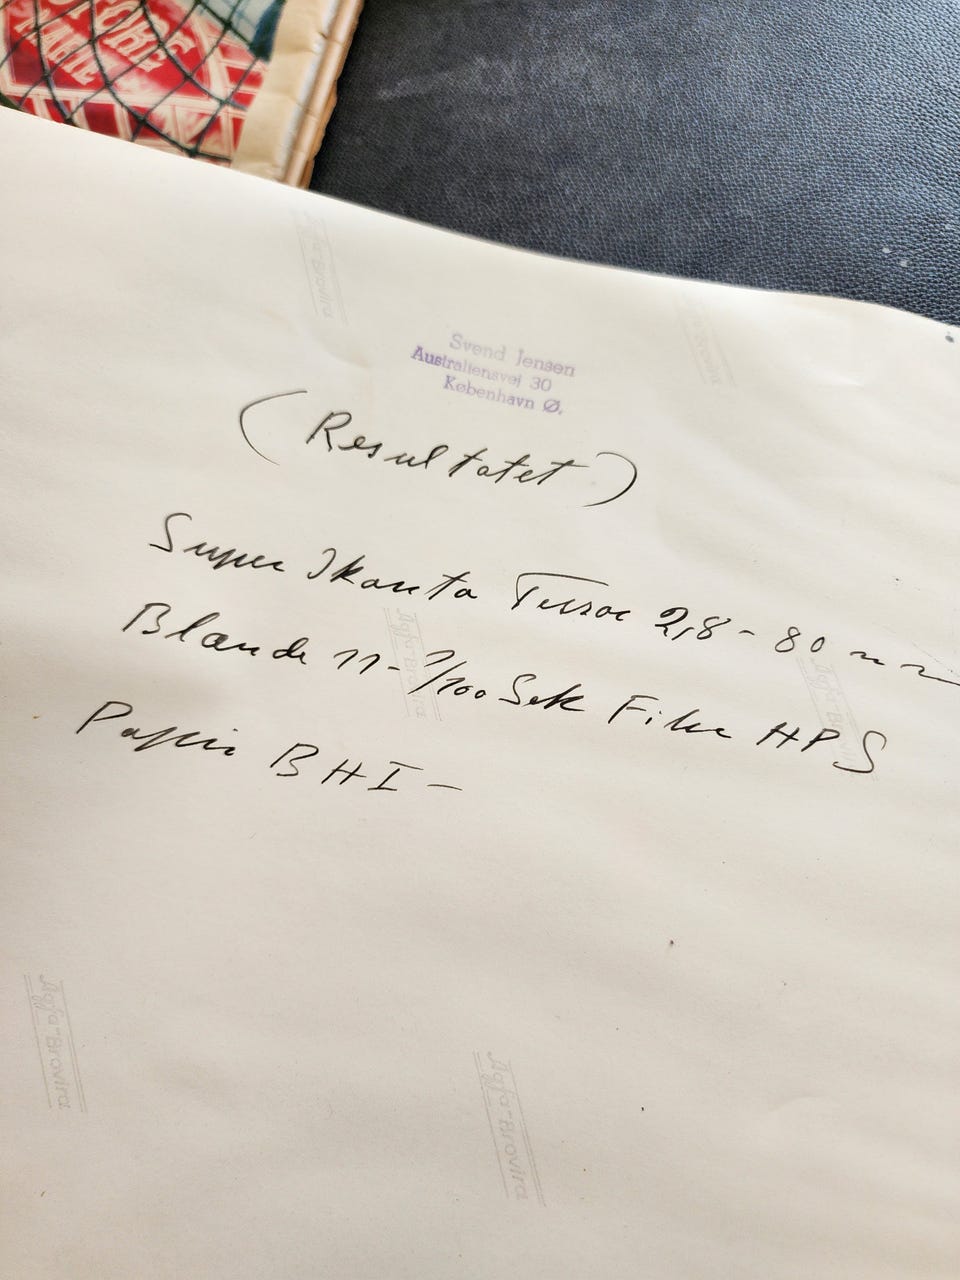 Svend Jensen
Australiensvej 30
København Ø.
(Resultatet)
Super Ikonta Tessar 2,8 - 80 mm
Blænde 11 - 1/100 Sek Film HPS
Papir BH1 -
Agfa-Brovira
Agfa-Brovira
Agfa-Brovira
Agfa-Brovira
Agfa-Brovira